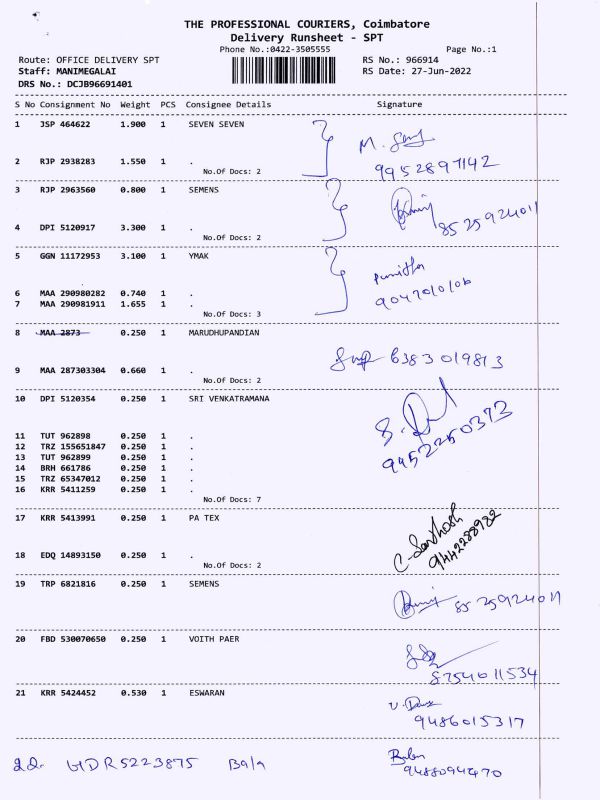 THE PROFESSIONAL COURIERS, Coimbatore
Delivery Runsheet - SPT
Phone No.:0422-3505555 Page No.:1
Route: OFFICE DELIVERY SPT RS No.: 966914
Staff: MANIMEGALAI RS Date: 27-Jun-2022
DRS No.: DCJB96691401
S No Consignment No Weight PCS Consignee Details Signature
1 JSP 464622 1.900 1 SEVEN SEVEN
2 RJP 2938283 1.550 1 .
9952897142
No.Of Docs: 2
3 RJP 2963560 0.800 1 SEMENS
8525924011
4 DPI 5120917 3.300 1 .
No.Of Docs: 2
5 GGN 11172953 3.100 1 YMAK
Punitha
6 MAA 290980282 0.740 1 .
7 MAA 290981911 1.655 1 .
No.Of Docs: 3
8 MAA 2873 0.250 1 MARUDHUPANDIAN
6383019813
9 MAA 287303304 0.660 1 .
No.Of Docs: 2
10 DPI 5120354 0.250 1 SRI VENKATRAMANA
9952250373
11 TUT 962898 0.250 1 .
12 TRZ 155651847 0.250 1 .
13 TUT 962899 0.250 1 .
14 BRH 661786 0.250 1 .
15 TRZ 65347012 0.250 1 .
16 KRR 5411259 0.250 1 .
No.Of Docs: 7
17 KRR 5413991 0.250 1 PA TEX
C. Santhosh
9442288982
18 EDQ 14893150 0.250 1 .
No.Of Docs: 2
19 TRP 6821816 0.250 1 SEMENS
8525924011
20 FBD 530070650 0.250 1 VOITH PAER
8754011534
21 KRR 5424452 0.530 1 ESWARAN
9486015317
22. 5223875 Bala
9488094470